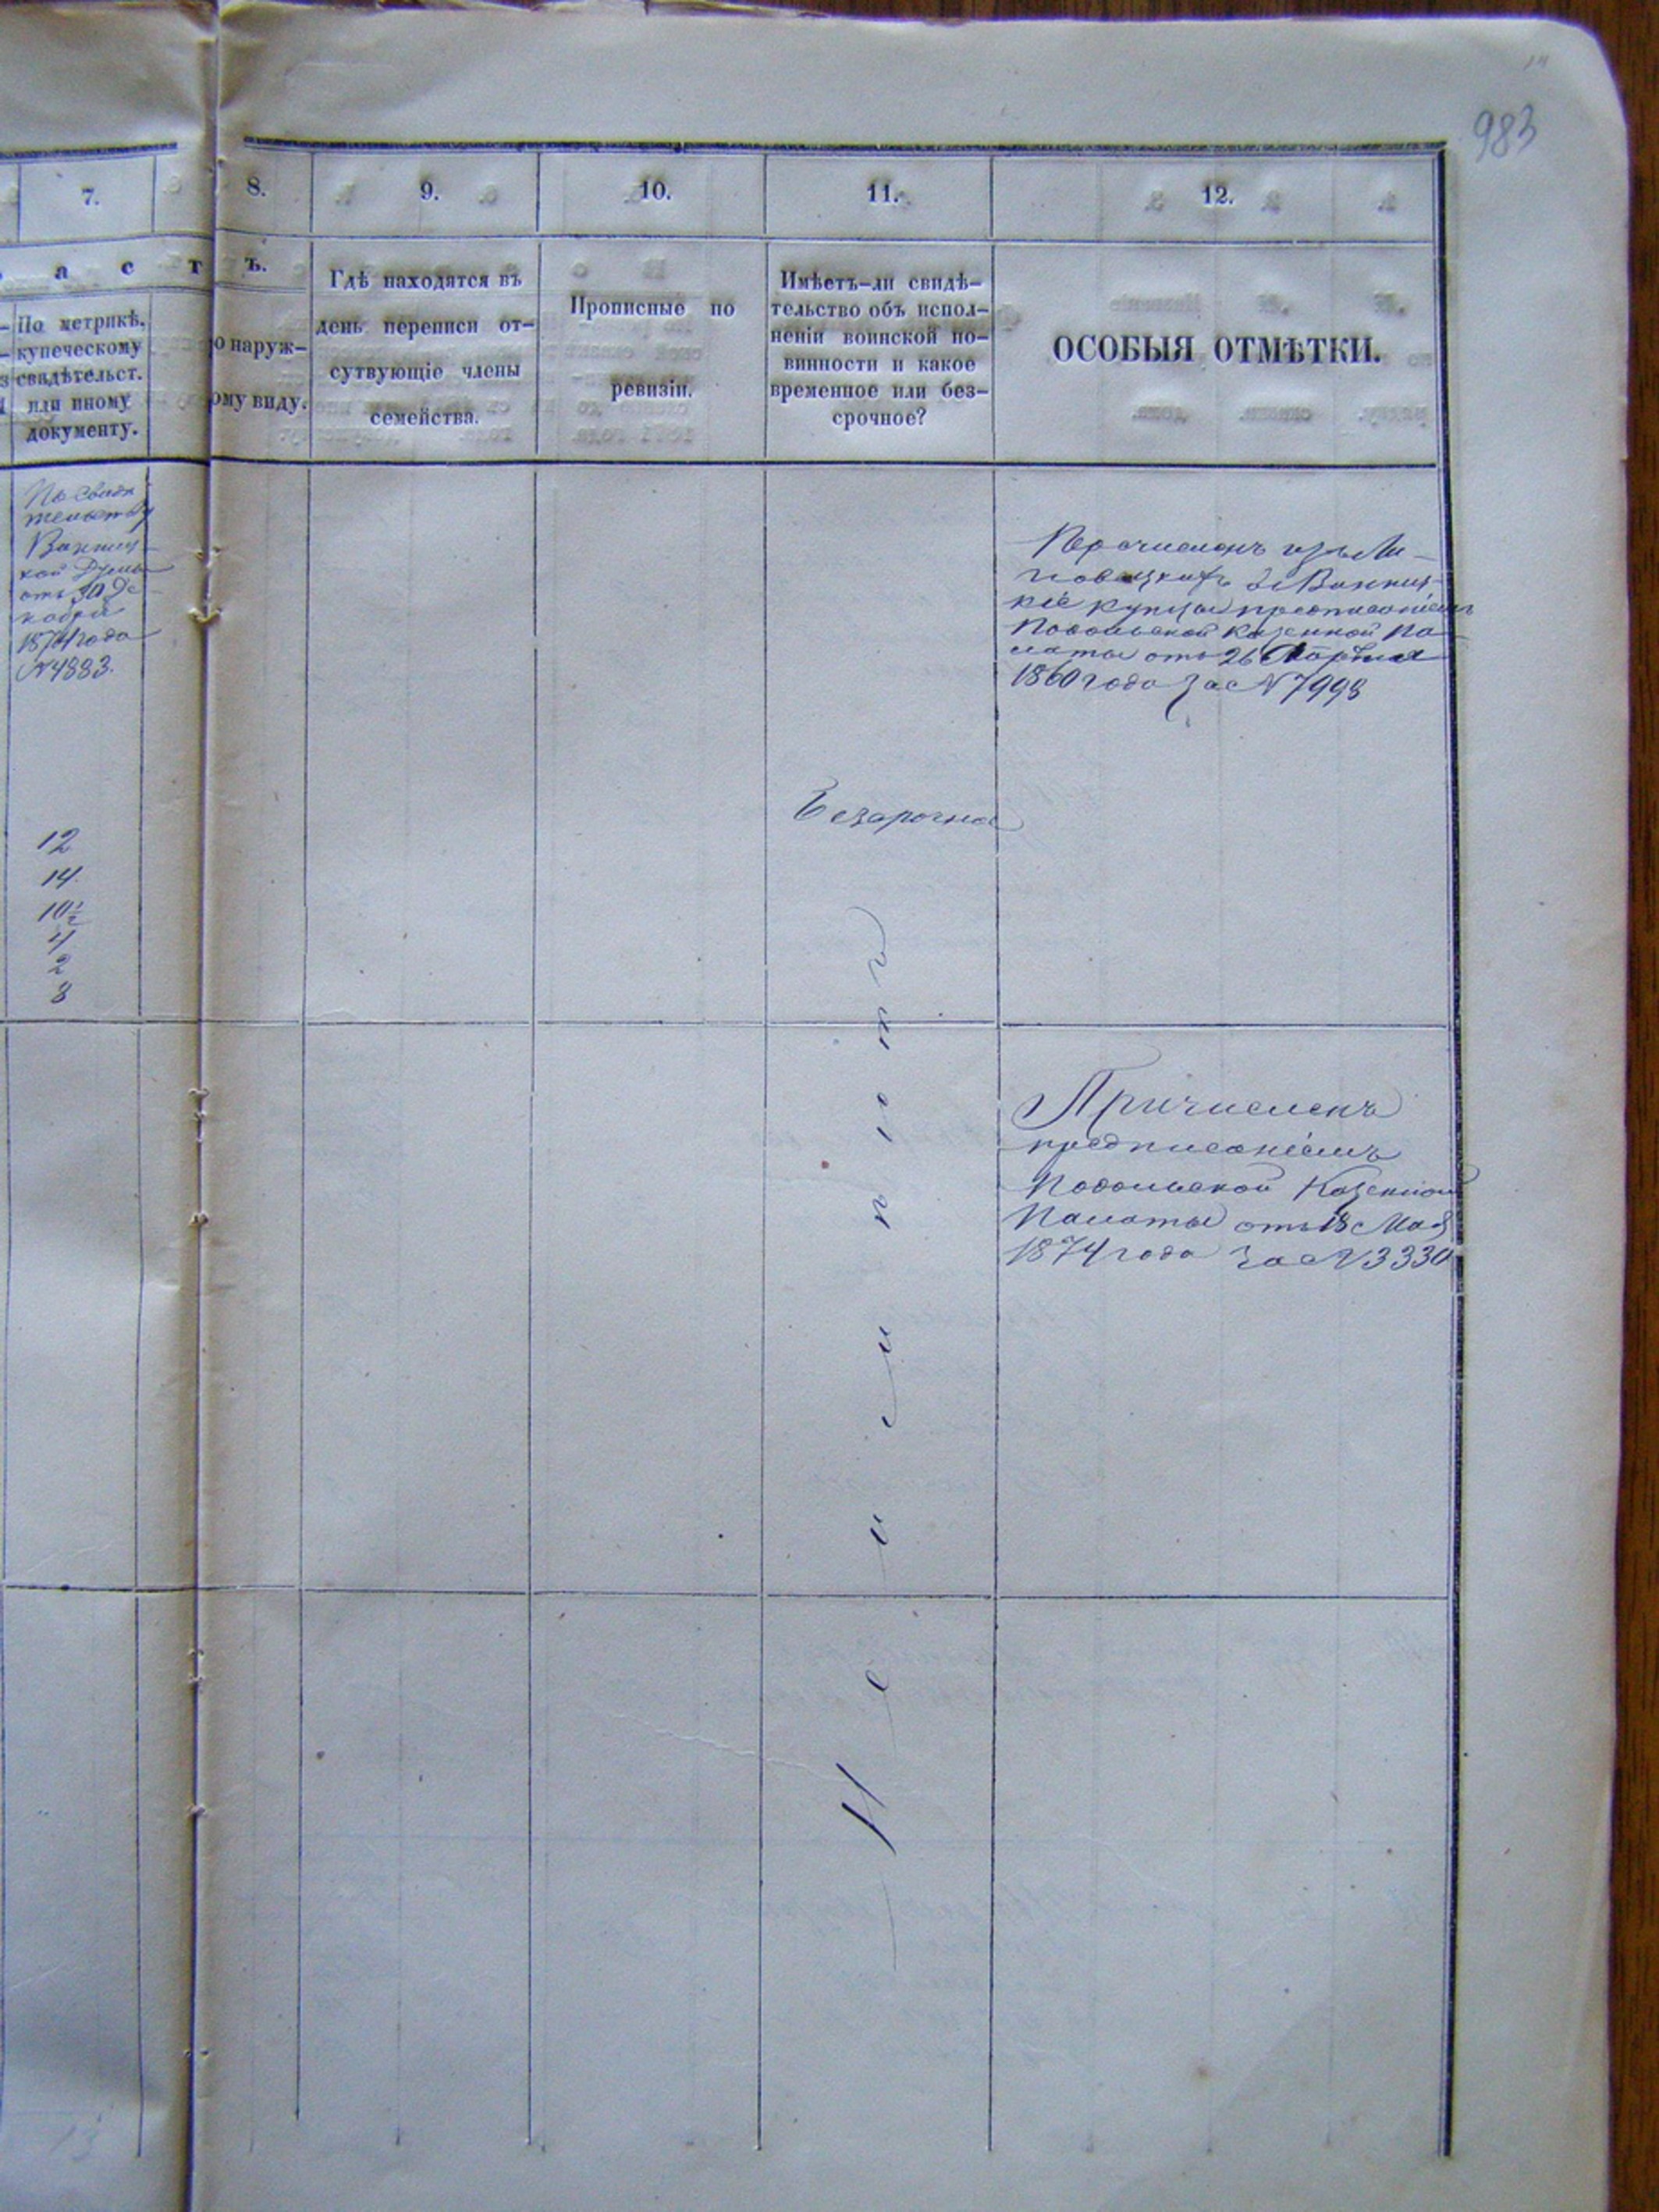 983
7.
8.
9.
10.
11.
12.
а с т ъ.
По метрикѣ,
купеческому
свидѣтельст.
или иному
документу.
о наруж-
ому виду.
Гдѣ находятся въ
день переписи от-
сутвующіе члены
семейства.
Прописные по
ревизіи.
Имѣетъ-ли свидѣ-
тельство объ испол-
неніи воинской по-
винности и какое
временное или без-
срочное?
ОСОБЫЯ ОТМѢТКИ.
По свидѣ
тельству
Винниц-
кой Думы
отъ 30 Де-
кабря
1874 года
№4883.
12
14.
10½
4
2
8
Безсрочное
Не имѣютъ
Перечисленъ изъ Ли-
въ Винниц-
кіе купцы предписаніемъ
Подольской Казенной Па-
латы отъ 26
1860 года за №7998
Причисленъ
предписаніемъ
Подольской Казенной
Палаты отъ 18 Мая
1874 года за №3330